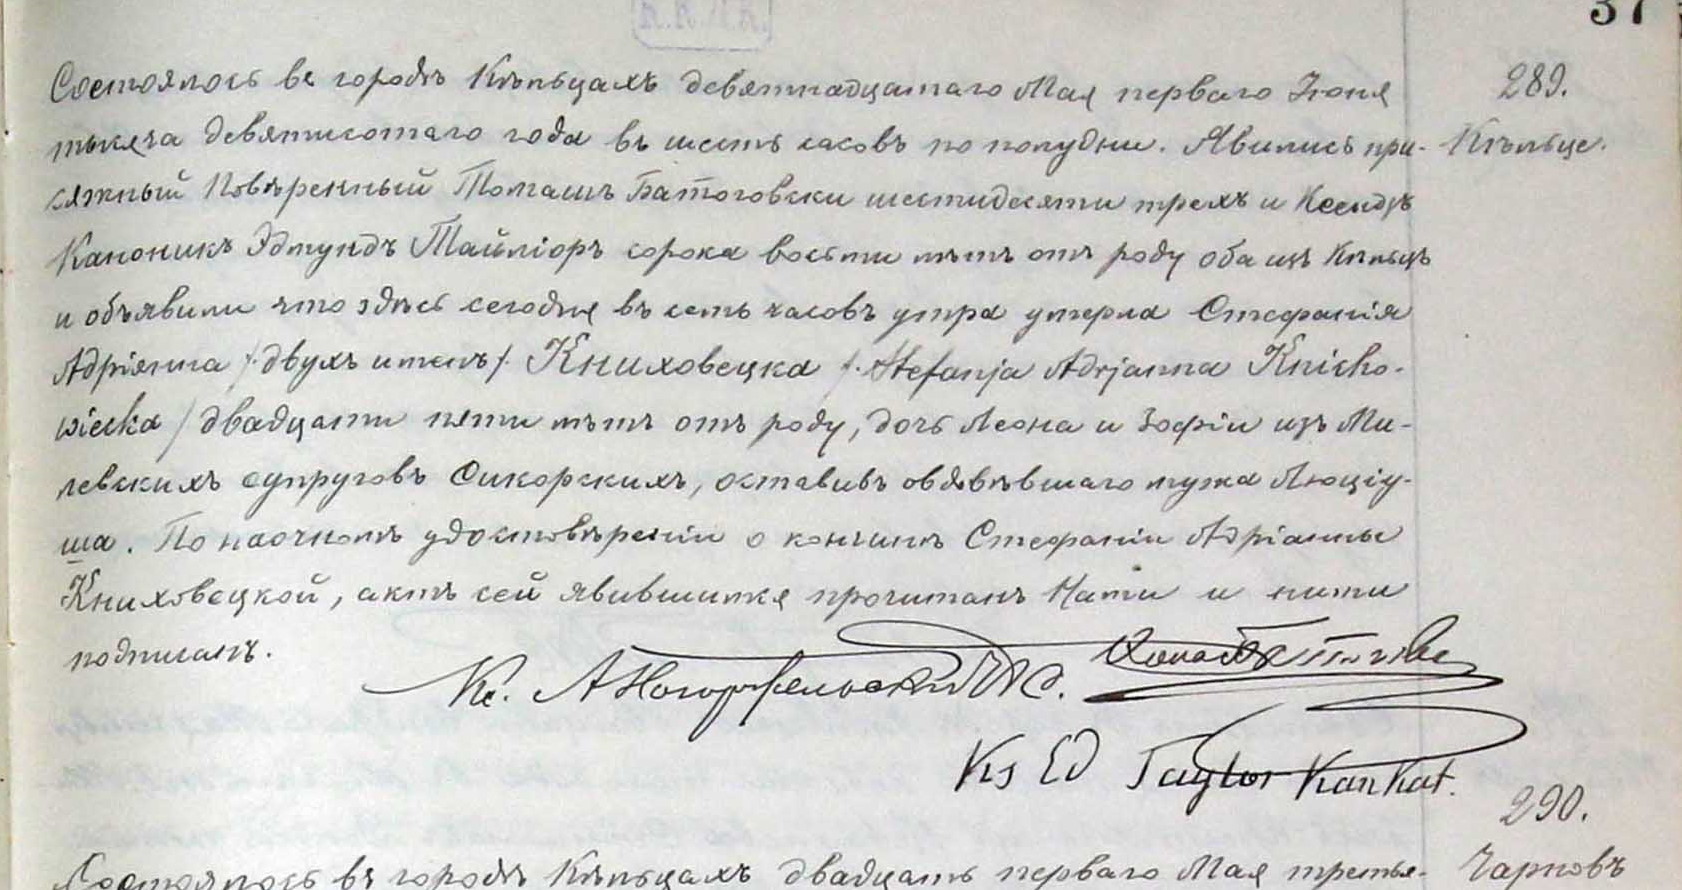 37
Состоялось въ городѣ Кѣльцахъ девятнадцатаго Мая перваго Іюня
289.
тысяча девятисотаго года въ шесть часовъ по полудни. Явились при-
Кѣльце.
сяжный Повѣренный Томашъ Батоговски шестидесяти трехъ и Ксендзъ
Каноникъ Эдмундъ Тайліоръ сорока восьми лѣтъ отъ роду оба изъ Кѣльцъ
и объявили что здѣсь сегодня въ семь часовъ утра умерла Стефанія
Адріянна /:двухъ именъ/: Книховецка /:Stefanja Adrjanna Knicho-
wiecka/ двадцати пяти лѣтъ отъ роду, дочь Леона и Зофіи изъ Ми-
левскихъ супруговъ Сикорскихъ, оставивъ овдовѣвшаго мужа Люціу-
ша. По наочномъ удостовѣреніи о кончинѣ Стефаніи Адріанны
Книховецкой, актъ сей явившимся прочитанъ Нами и ними
подписанъ.
Кс.
Ks Ed Taylor Kan Kat.
290.
Состоялось въ городѣ Кѣльцахъ двадцать перваго Мая третья-
Чарновъ